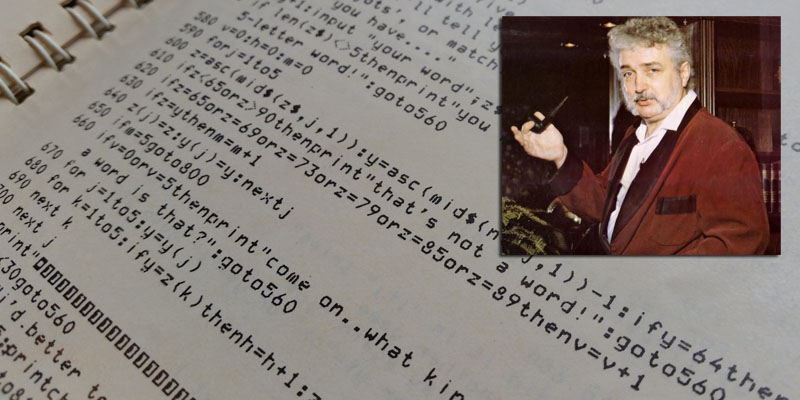 with le
ots', or match
ll tell y
you have...."
input "your word";z$
if len(z$)<>5thenprint"you
5-letter word!":goto560
580 v=0:h=0:m=0
590 forj=1to5
600 z=asc(mid$(z$,j,1)):y=asc(mid$(n j,1))-1:ify=64then
610 ifz<65orz>90thenprint"that's not a word!":goto560
620 ifz=65orz=69orz=73orz=79orz=85orz=89thenv=v+1
630 ifz=ythenm=m+1
640 z(j)=z:y(j)=y:nextj
650 ifm=5goto800
660 ifv=0orv=5thenprint"come on..what kin
a word is that?":goto560
670 for j=1to5:y=y(j)
680 for k=1to5:ify=z(k)thenh=h+1:z
690 next k
700 next j
print"
<30goto560
d.better to
:printch